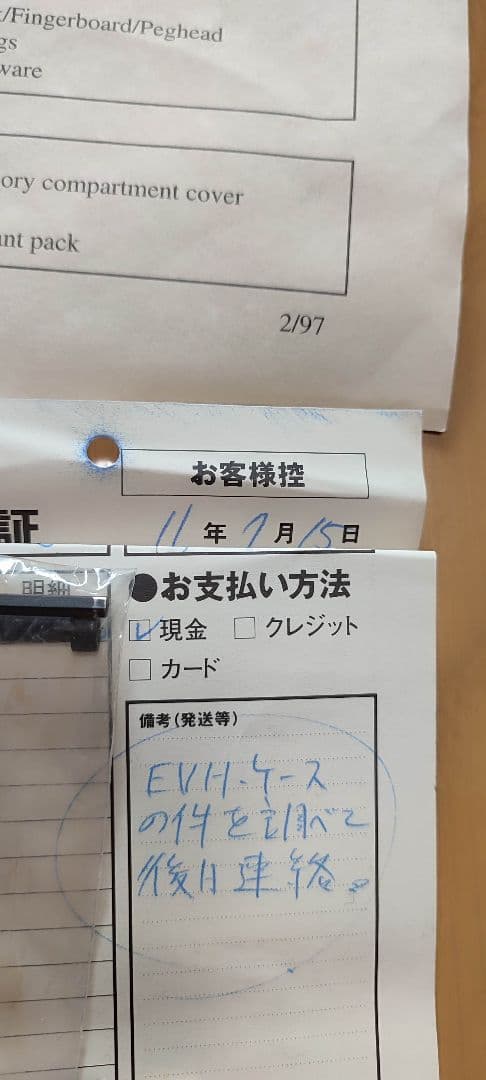 /Fingerboard/Peghead
gs
ware
ory compartment cover
nt pack
2/97
お客様控
証
11年7月15日
明細
●お支払い方法
☑現金 □クレジット
□カード
備考(発送等)
EVH.ケース
の件を調べて
後日連絡。